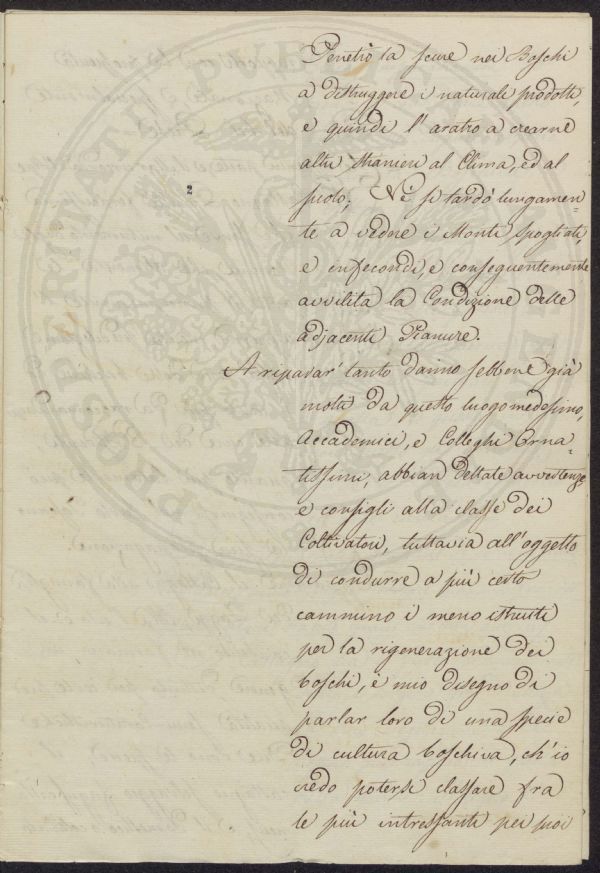 Penetrò la scure nei Boschi
a distruggere i naturali prodotti,
e quindi l'aratro a crearne
altri stranieri al Clima, ed al
suolo; Nè si tardò lungamen=
te a vedere i Monti spogliati,
e infecondi, e conseguentemente
avvilita la Condizione delle
adjacenti Pianure.
A riparar' tanto danno sebbene già
molti da questo luogo medesimo,
Accademici, e Colleghi Orna=
tissimi, abbian dettate avvertenze
e consigli alla classe dei
Coltivatori, tuttavia all'oggetto
di condurre a più certo
cammino i meno istruiti
per la rigenerazione dei
boschi, è mio disegno di
parlar loro di una specie
di cultura boschiva, ch'io
credo potersi classare fra
le più interessanti pei suoi
PROSPERITATI PUBLICAE